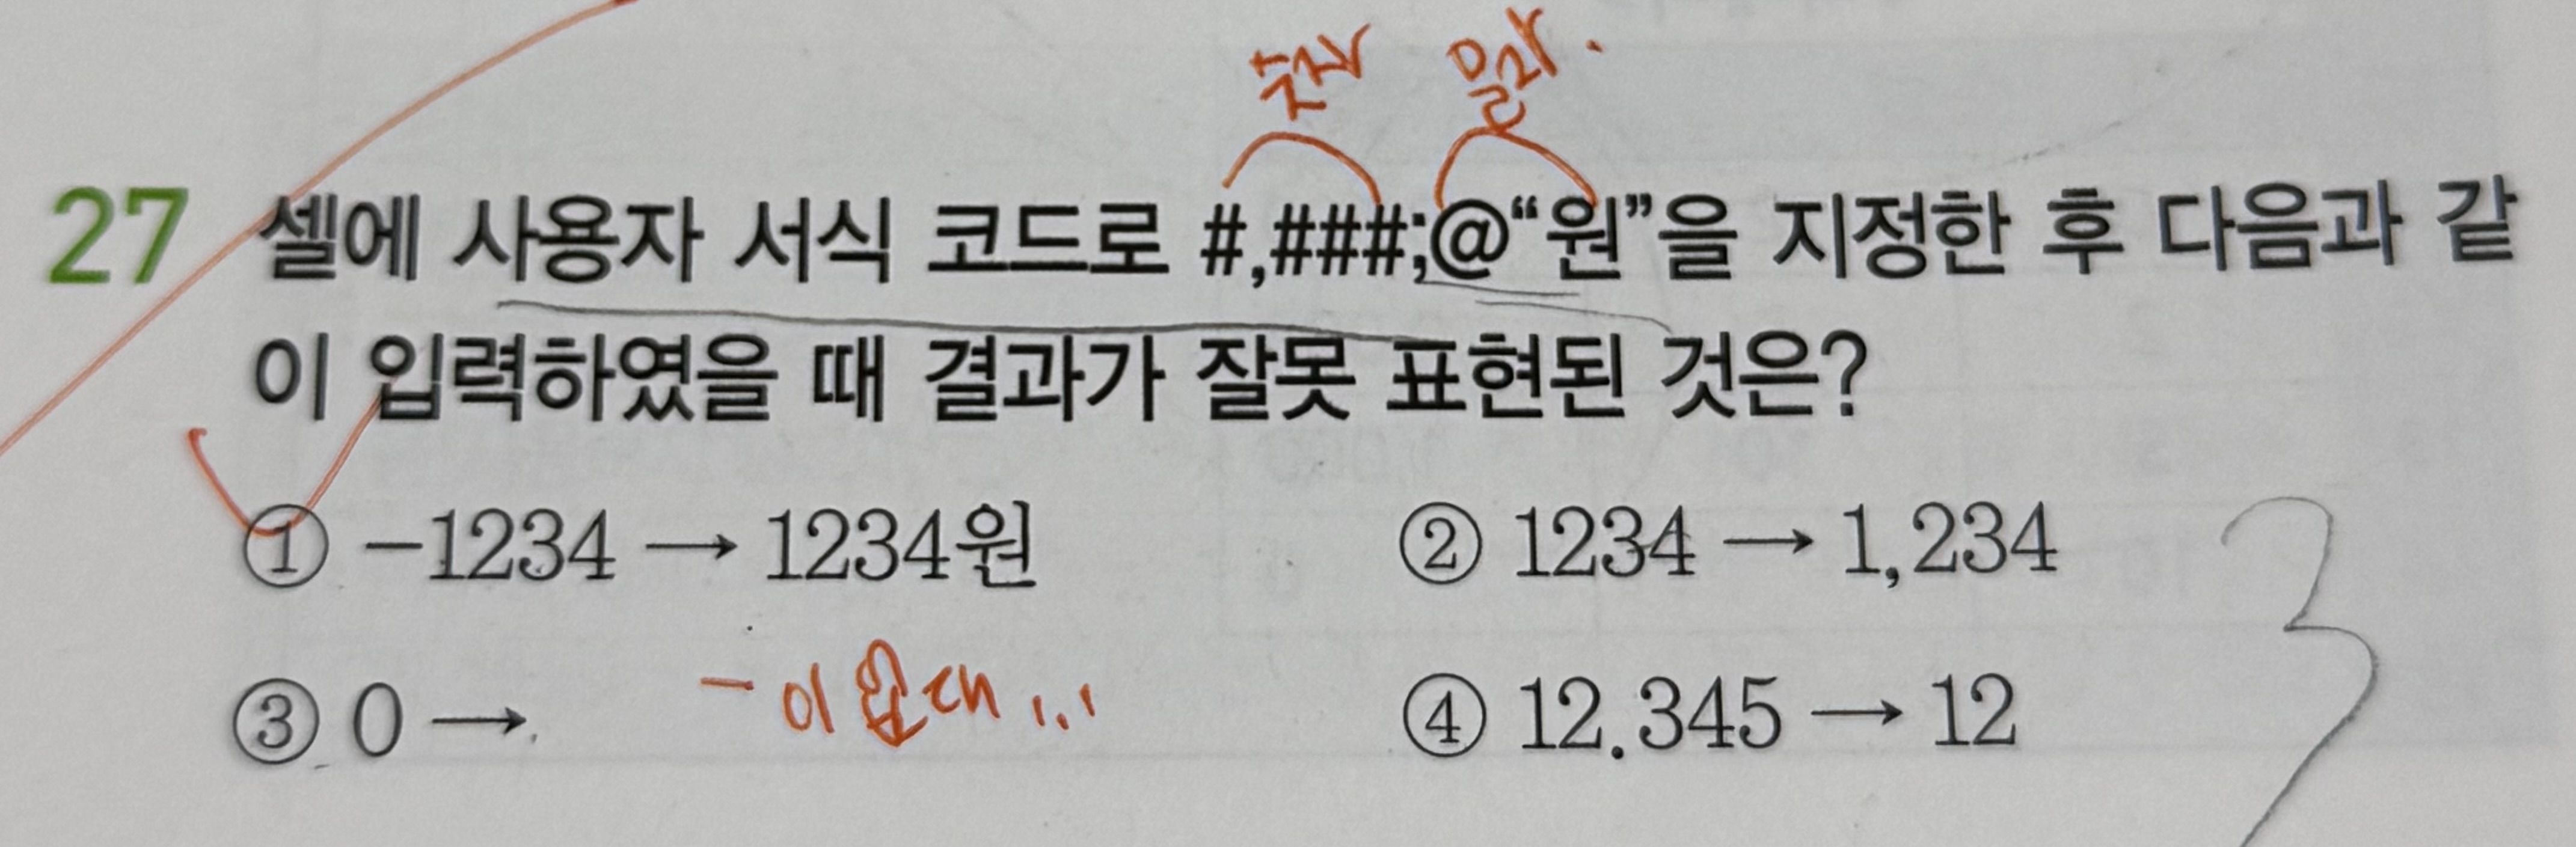 숫자 문자.
27 셀에 사용자 서식 코드로 #,###;@“원”을 지정한 후 다음과 같
이 입력하였을 때 결과가 잘못 표현된 것은?
① -1234 → 1234원 ② 1234 → 1,234
③ 0 → ④ 12.345 → 12
- 이 없대...
3